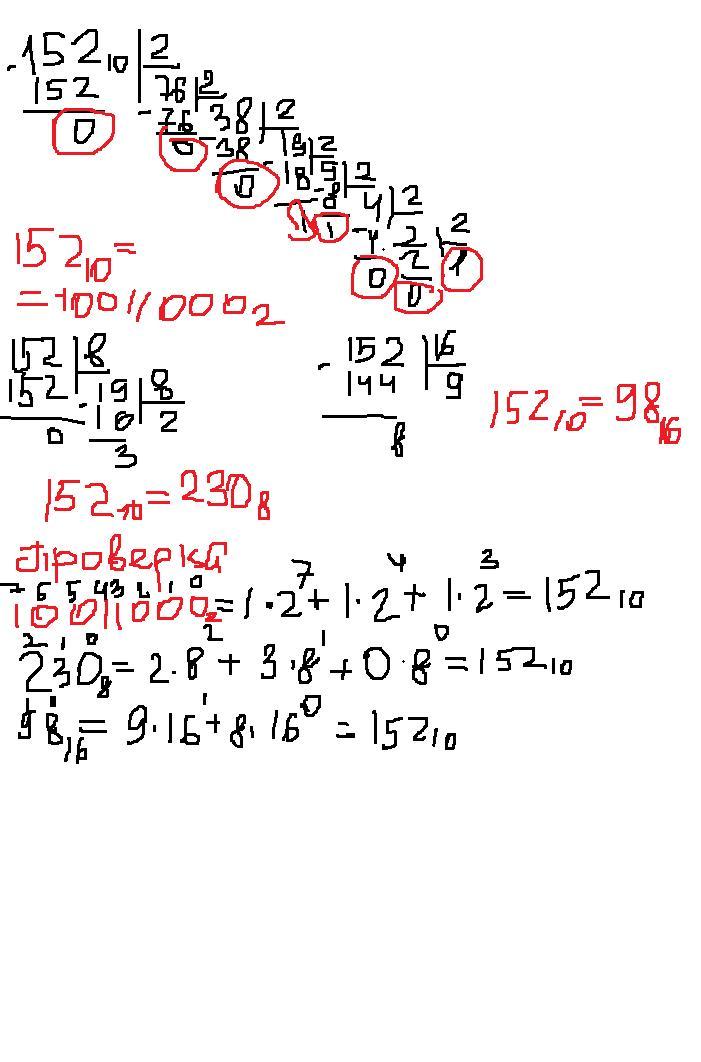 -152₁₀ | 2
152 76 | 2
0 -76 -38 | 2
0 38 -19 | 2
0 -18 9 | 2
1 -8 4 | 2
1 4 2 | 2
0 2 1
0
152₁₀=
=10011000₂
152 | 8
152 -19 | 8
0 10 2
3
-152 | 16
144 9
8
152₁₀=98₁₆
152₁₀=230₈
проверка
7 6 5 4 3 2 1 0
10011000₂=1·2⁷+1·2⁴+1·2³=152₁₀
2 1 0
230₈=2·8²+3·8¹+0·8⁰=152₁₀
1 0
98₁₆=9·16¹+8·16⁰=152₁₀